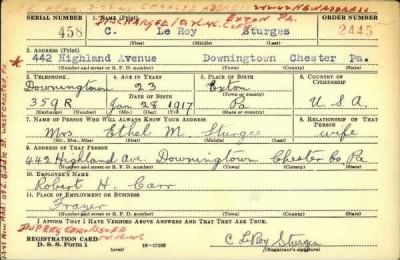 SERIAL NUMBER 1. NAME (Print) ORDER NUMBER
458 C. Le Roy Sturges 2445
(First) (Middle) (Last)
2. ADDRESS (Print)
442 Highland Avenue Downingtown Chester Pa.
(Number and street or R. F. D. number) (Town) (County) (State)
3. TELEPHONE 4. AGE IN YEARS 5. PLACE OF BIRTH 6. COUNTRY OF CITIZENSHIP
Downingtown 23 Exton
DATE OF BIRTH (Town or county)
359R Jan 28 1917 Pa U. S. A.
(Exchange) (Number) (Mo.) (Day) (Yr.) (State or country)
7. NAME OF PERSON WHO WILL ALWAYS KNOW YOUR ADDRESS 8. RELATIONSHIP OF THAT PERSON
Mrs Ethel M. Sturges wife
(Mr., Mrs., Miss) (First) (Middle) (Last)
9. ADDRESS OF THAT PERSON
442 Highland Ave. Downingtown Chester Co. Pa
(Number and street or R. F. D. number) (Town) (County) (State)
10. EMPLOYER'S NAME
Robert H. Carr
11. PLACE OF EMPLOYMENT OR BUSINESS
Frazer
(Number and street or R. F. D. number) (Town) (County) (State)
I AFFIRM THAT I HAVE VERIFIED ABOVE ANSWERS AND THAT THEY ARE TRUE.
REGISTRATION CARD
D. S. S. Form 1 (over) 16—17105 C LeRoy Sturges
(Registrant's signature)